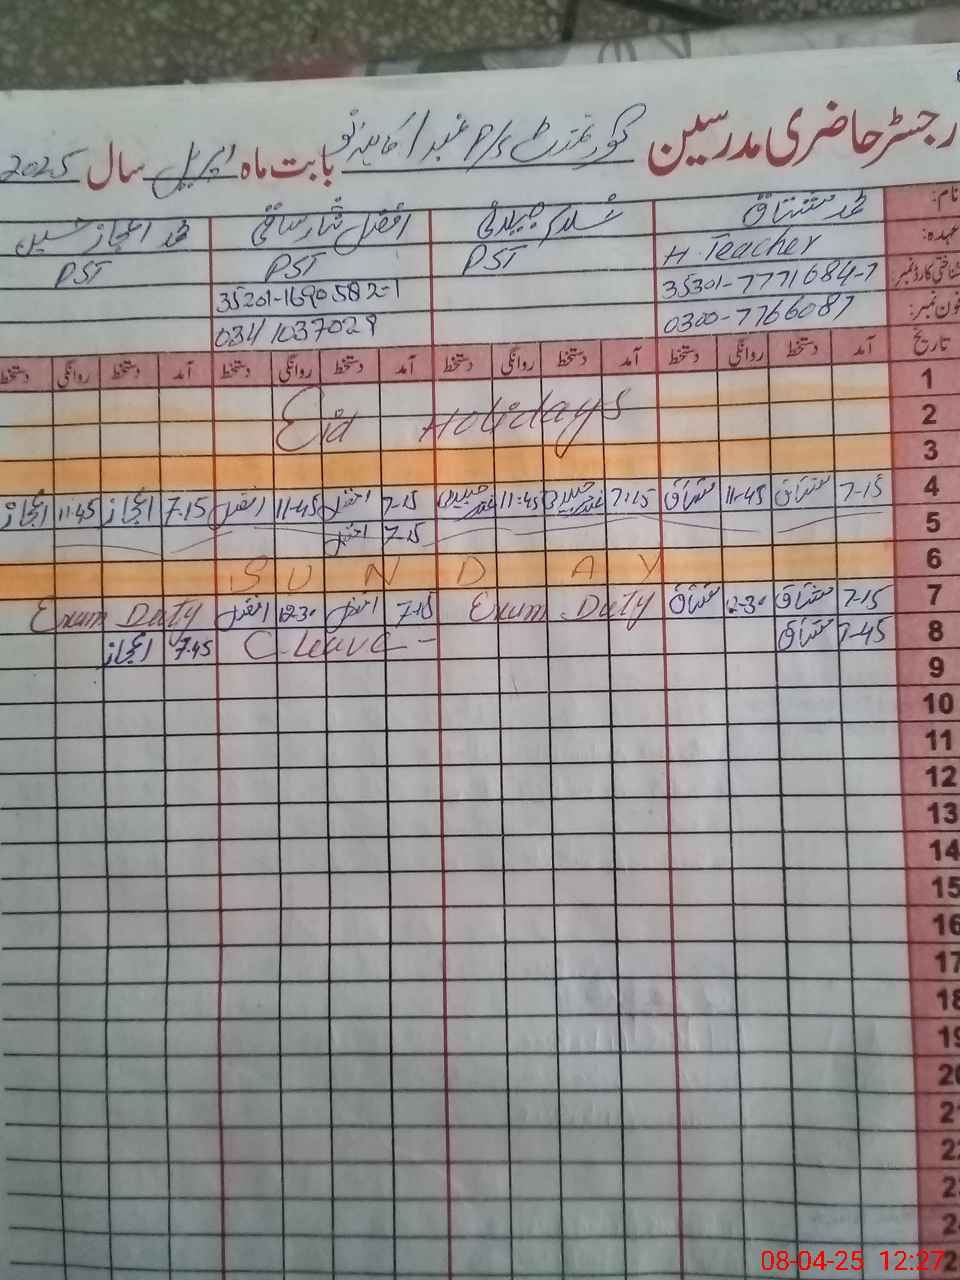 رجسٹر حاضری مدرسین گورنمنٹ P/S نمبر 1 بابت ماہ اپریل سال 2025
نام: محمد مشتاق افضل محمد اعجاز حسین
عہدہ: H. Teacher PST PST PST
شناختی کارڈ نمبر: 35301-7771684-7 35201-1690582-1
فون نمبر: 0300-7766087 0341 1037029
تاریخ آمد دستخط روانگی دستخط آمد دستخط روانگی دستخط آمد دستخط روانگی دستخط آمد دستخط روانگی دستخط
1
2 Eid Holidays
3
4 7-15 مشتاق 11-45 مشتاق 7:15 11:45 7-15 افضل 11-45 افضل 7-15 اعجاز 11:45 اعجاز
5 7-15 افضل
6 SUNDAY
7 7-15 مشتاق 12-30 مشتاق Exam Duty 7-15 افضل 12-30 افضل Exam Duty
8 7-45 مشتاق C. Leave - 7-45 اعجاز
9
10
11
12
13
14
15
16
17
18
19
20
21
22
23
24
08-04-25 12:27